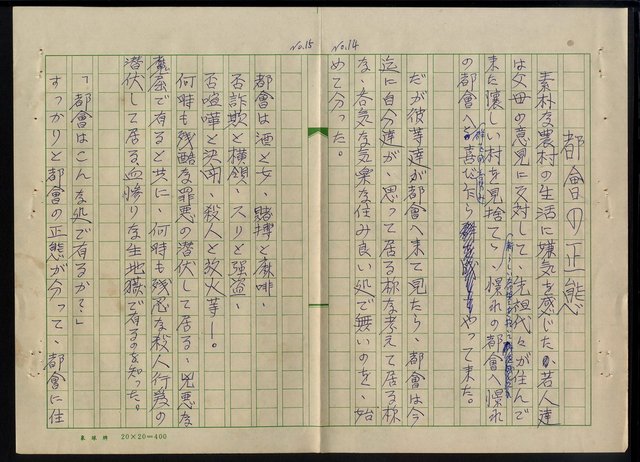 No.14
都會の正態
素朴な農村の生活に嫌気を感じたか若人達
は父母の意見に反対して、先祖代々が住んで
来た懐しい村を見捨てゝ、憬れの都會へ憬れ
の都會へと喜び乍らやって来た。
だが彼等達が都會へ来て見たら、都會は今
迄に自分達が、思って居る様な考えて居る様
な、呑気な気楽な住み良い処で無いのを、始
めて分った。
No.15
都會は酒と女、賭搏と麻啡、
否詐欺と横領、スリと强盗、
否喧嘩と決闘、殺人と放火等―。
何時も残酷な罪悪の潜伏して居る、兇悪な
魔窟で有ると共に、何時も残忍な殺人行為の
潜伏して居る血惨りな生地獄で有るのを知った。
「都會はこんな処で有るか?」
すっかりと都會の正態が分って、都會に住
象球牌 20×20=400